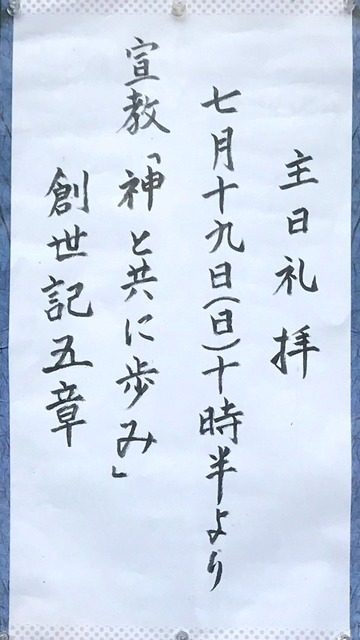 主日礼拝
七月十九日(日)十時半より
宣教「神と共に歩み」
創世記五章